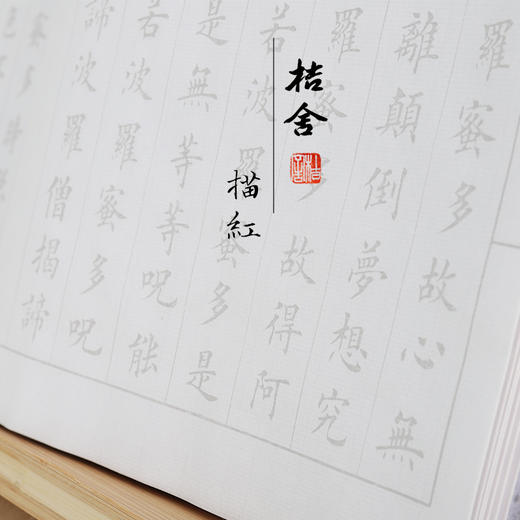 桔舍
桔舍
描紅
羅蜜多故心無
離顛倒夢想究
羅蜜多故得阿
若波羅蜜多是
是無等等呪能
若波羅蜜多呪
諦波羅僧揭諦